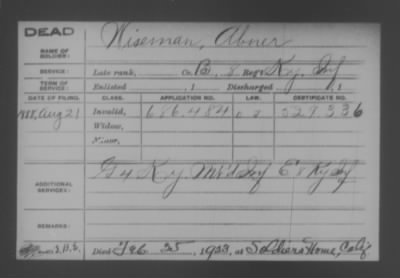 DEAD
NAME OF SOLDIER: Wiseman, Abner
SERVICE: Late rank, Co. B, 8 Reg't Ky. Inf
TERM OF SERVICE: Enlisted , 1 Discharged , 1
DATE OF FILING. CLASS. APPLICATION NO. LAW. CERTIFICATE NO.
1888, Aug 21 Invalid, 686.484 529.336
Widow,
Minor,
ADDITIONAL SERVICES: G 4 Ky. Mt'd Inf E 8 Ky Inf
REMARKS:
Died Feb 25, 1923, at Soldiers Home, Calif